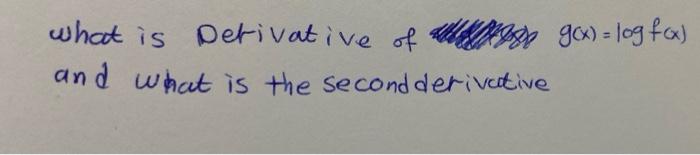 what is Derivative of g(x) = log f(x)
and what is the second derivative